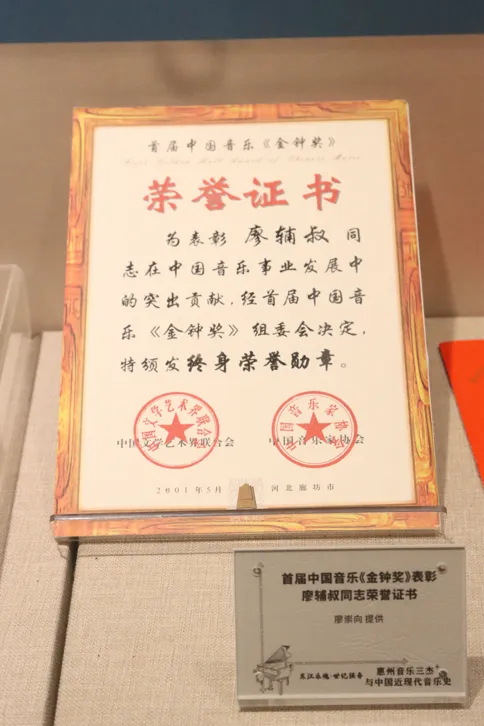 首届中国音乐《金钟奖》
荣誉证书
为表彰 廖辅叔 同
志在中国音乐事业发展中
的突出贡献，经首届中国音
乐《金钟奖》组委会决定，
特颁发终身荣誉勋章。
中国文学艺术界联合会
中国音乐家协会
中国文学艺术界联合会
中国音乐家协会
2001年5月
河北廊坊市
首届中国音乐《金钟奖》表彰
廖辅叔同志荣誉证书
廖崇向 提供
东江乐魂·世纪强音
惠州音乐三杰
与中国近现代音乐史